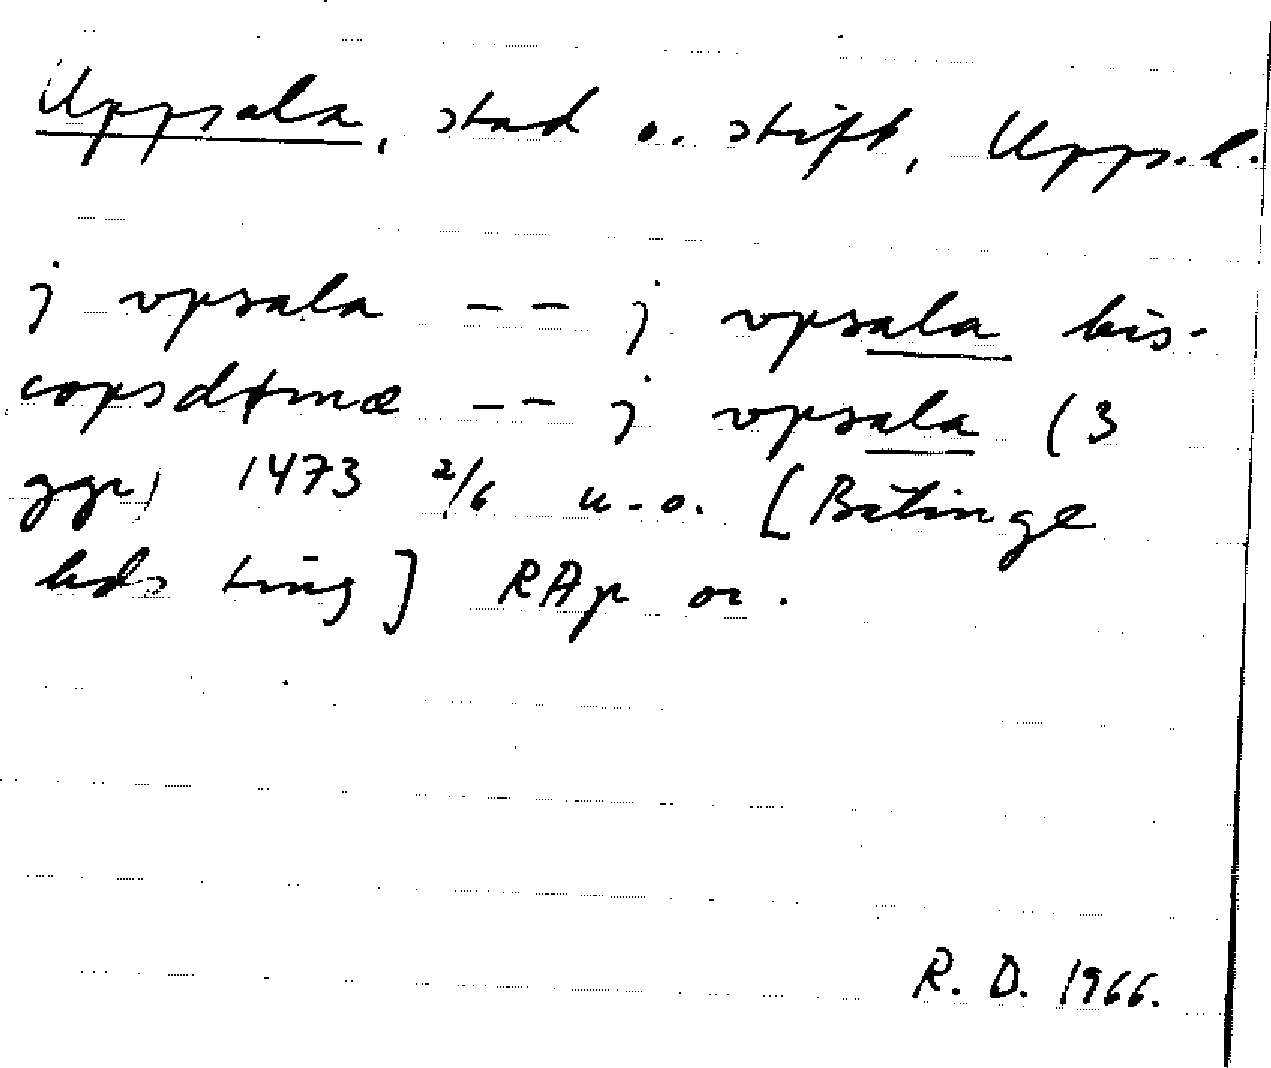 Uppsala, stad o. stift, Upps. l.
j vpsala -- j vpsala bis-
copsdømæ -- j vpsala (3
ggr) 1473 2/6 u.o. [Bälinge
hds ting] RAp or.
R. D. 1966.